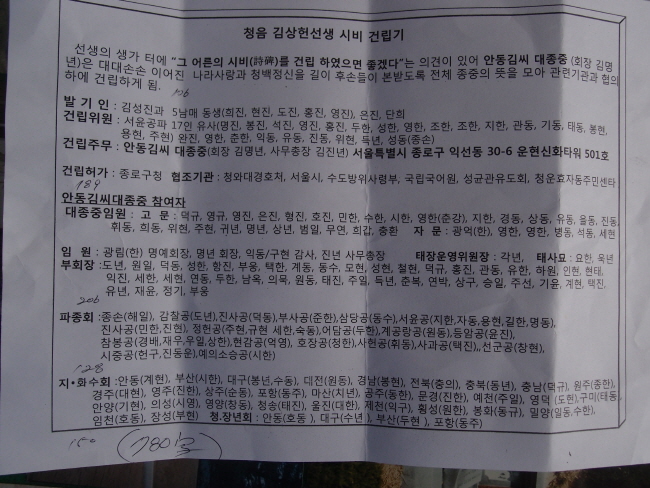 청음 김상헌선생 시비 건립기
선생의 생가 터에 "그 어른의 시비(詩碑)를 건립 하였으면 좋겠다"는 의견이 있어 안동김씨 대종중 (회장 김명
년)은 대대손손 이어진 나라사랑과 청백정신을 길이 후손들이 본받도록 전체 종중의 뜻을 모아 관련기관과 협의
하에 건립하게 됨.
106
발 기 인 : 김성진과 5남매 동생(희진, 현진, 도진, 홍진, 영진), 은진, 단희
건립위원 : 서윤공파 17인 유사(명진, 봉진, 석진, 영진, 홍진, 두한, 성한, 영한, 조한, 조한, 지한, 관동, 기동, 태동, 봉현,
용현, 주현) 완진, 영한, 춘한, 익동, 유동, 진동, 위현, 득년, 성동(종손)
건립주무 : 안동김씨 대종중(회장 김명년, 사무총장 김진년) 서울특별시 종로구 익선동 30-6 운현신화타워 501호
건립허가 : 종로구청 협조기관 : 청와대경호처, 서울시, 수도방위사령부, 국립국어원, 성균관유도회, 청운효자동주민센타
189
안동김씨대종중 참여자
대종중임원 : 고 문 : 덕규, 영규, 영진, 은진, 형진, 호진, 민한, 수한, 시한, 영한(춘강), 지한, 경동, 상동, 유동, 을동, 진동,
휘동, 희동, 위현, 주현, 귀년, 명년, 상년, 범일, 무연, 희갑, 충환 자 문 : 광억(한), 영한, 영한, 병동, 석동, 세현
임 원 : 광림(한) 명예회장, 명년 회장, 익동/구현 감사, 진년 사무총장 태장운영위원장 : 각년, 태사묘 : 요한, 욱년
부회장 : 도년, 원일, 덕동, 성한, 항진, 부응, 택한, 계동, 동수, 모현, 성현, 철현, 덕규, 홍진, 관동, 유한, 하원, 인현, 현태,
익진, 세한, 세현, 연동, 두한, 남옥, 의묵, 원동, 태진, 주일, 득년, 춘복, 연박, 상구, 승일, 주선, 기윤, 계현, 택진,
유년, 재윤, 정기, 부웅
206
파종회 : 종손(해일), 감찰공(도년), 진사공(덕동), 부사공(준한), 삼당공(동수), 서윤공(지한,자동,용현,길한,명동),
진사공(민한,진현), 정헌공(주현,규현 세한,숙동), 어담공(두한), 계공랑공(원동), 등암공(윤진),
참봉공(경배,재우,우일,상한), 현감공(억영), 호장공(정한), 사헌공(휘동), 사과공(택진), 선군공(창현),
시중공(헌구,진동운), 예의소승공(시한)
128
지·화수회 : 안동(계현), 부산(시한), 대구(봉년,수동), 대전(원동), 경남(봉현), 전북(충의), 충북(동년), 충남(덕규), 원주(종한),
경주(대현), 영주(진한), 상주(순동), 포항(동주), 마산(치년), 공주(동한), 문경(진한), 예천(주일), 영덕 (도현),구미(태동),
안양(기현), 의성(시영), 영양(창동), 청송(태진), 울진(대한), 제천(익구), 횡성(원한), 봉화(동규), 밀양(일동,수한),
임천(호동), 장성(부현) 청.장년회 : 안동(호동 ), 대구(수년 ), 부산(두현 ), 포항(동주)
150 780